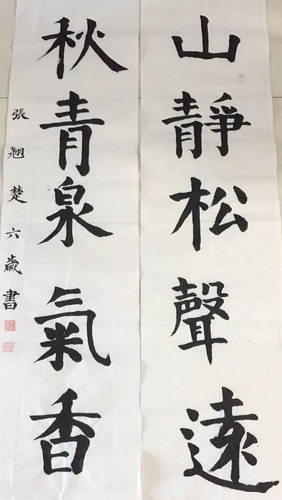 山靜松聲遠
秋青泉氣香
張翘楚六歲書